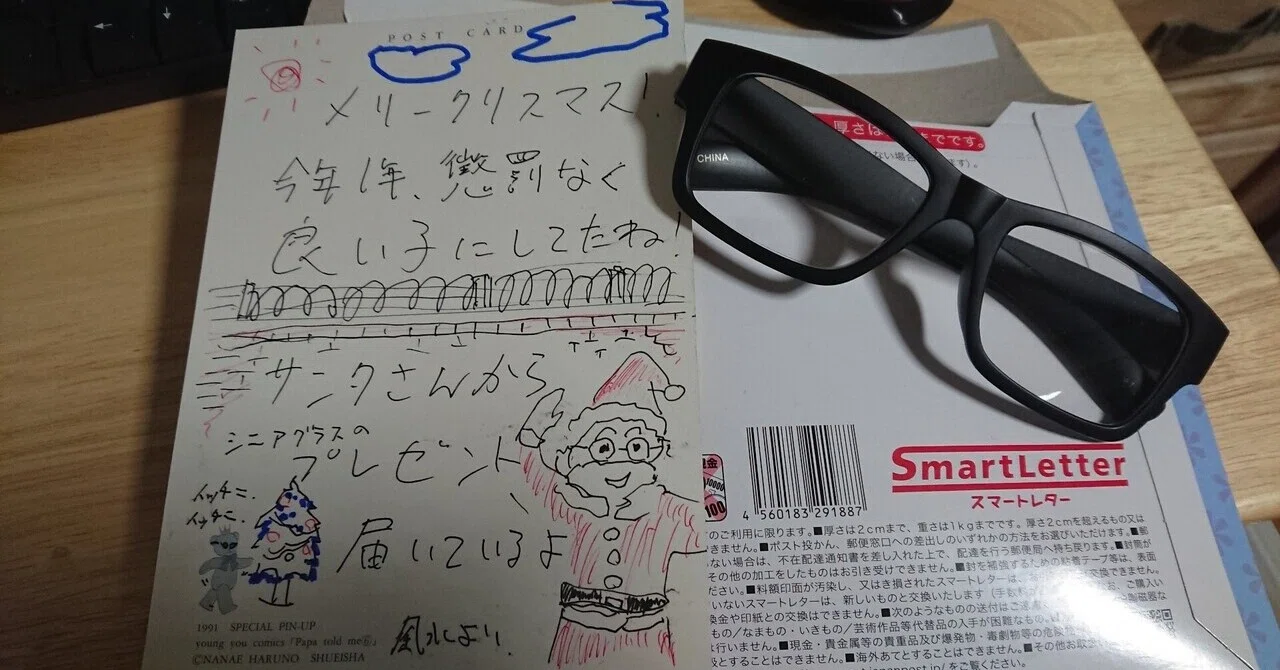 POST CARD
メリークリスマス!
今年1年、懲罰なく
良い子にしてたね!
サンタさんから
シニアグラスの
プレゼント
イッチニ、
イッチニ、
届いているよ
風水より
1991 SPECIAL PIN-UP
young you comics 「Papa told me⑥」
©NANAE HARUNO SHUEISHA
CHINA
厚さは
までです。
ない場合
SmartLetter
スマートレター
4 560183 291887
現金
10000
100
のご利用に限ります。■厚さは2cmまで、重さは1kgまでです。厚さ2cmを超えるもの又は
きません。■ポスト投かん、郵便窓口への差出しのいずれかの方法をお選びいただけます。■郵
ない場合は、不在配達通知書を差し入れた上で、配達を行う郵便局へ持ち戻ります。■封筒が
その他の加工をしたものはお引き受けできません。■封を補強するための粘着テープ等は、表面
ださい。■料額印面が汚染し、又はき損されたスマートレターは、
交換できません。
いないスマートレターは、新しいものと交換いたします
ご購入い
換金や印紙との交換はできません。■次のようなものの送付はご遠慮
もの/なまもの・いきもの/芸術作品等代替品の入手が困難なもの
は行いません。■現金・貴金属等の貴重品及び爆発物・毒劇物等の危険
段とすることはできません。■海外あてとすることはできません。■その他お取
をご覧ください。